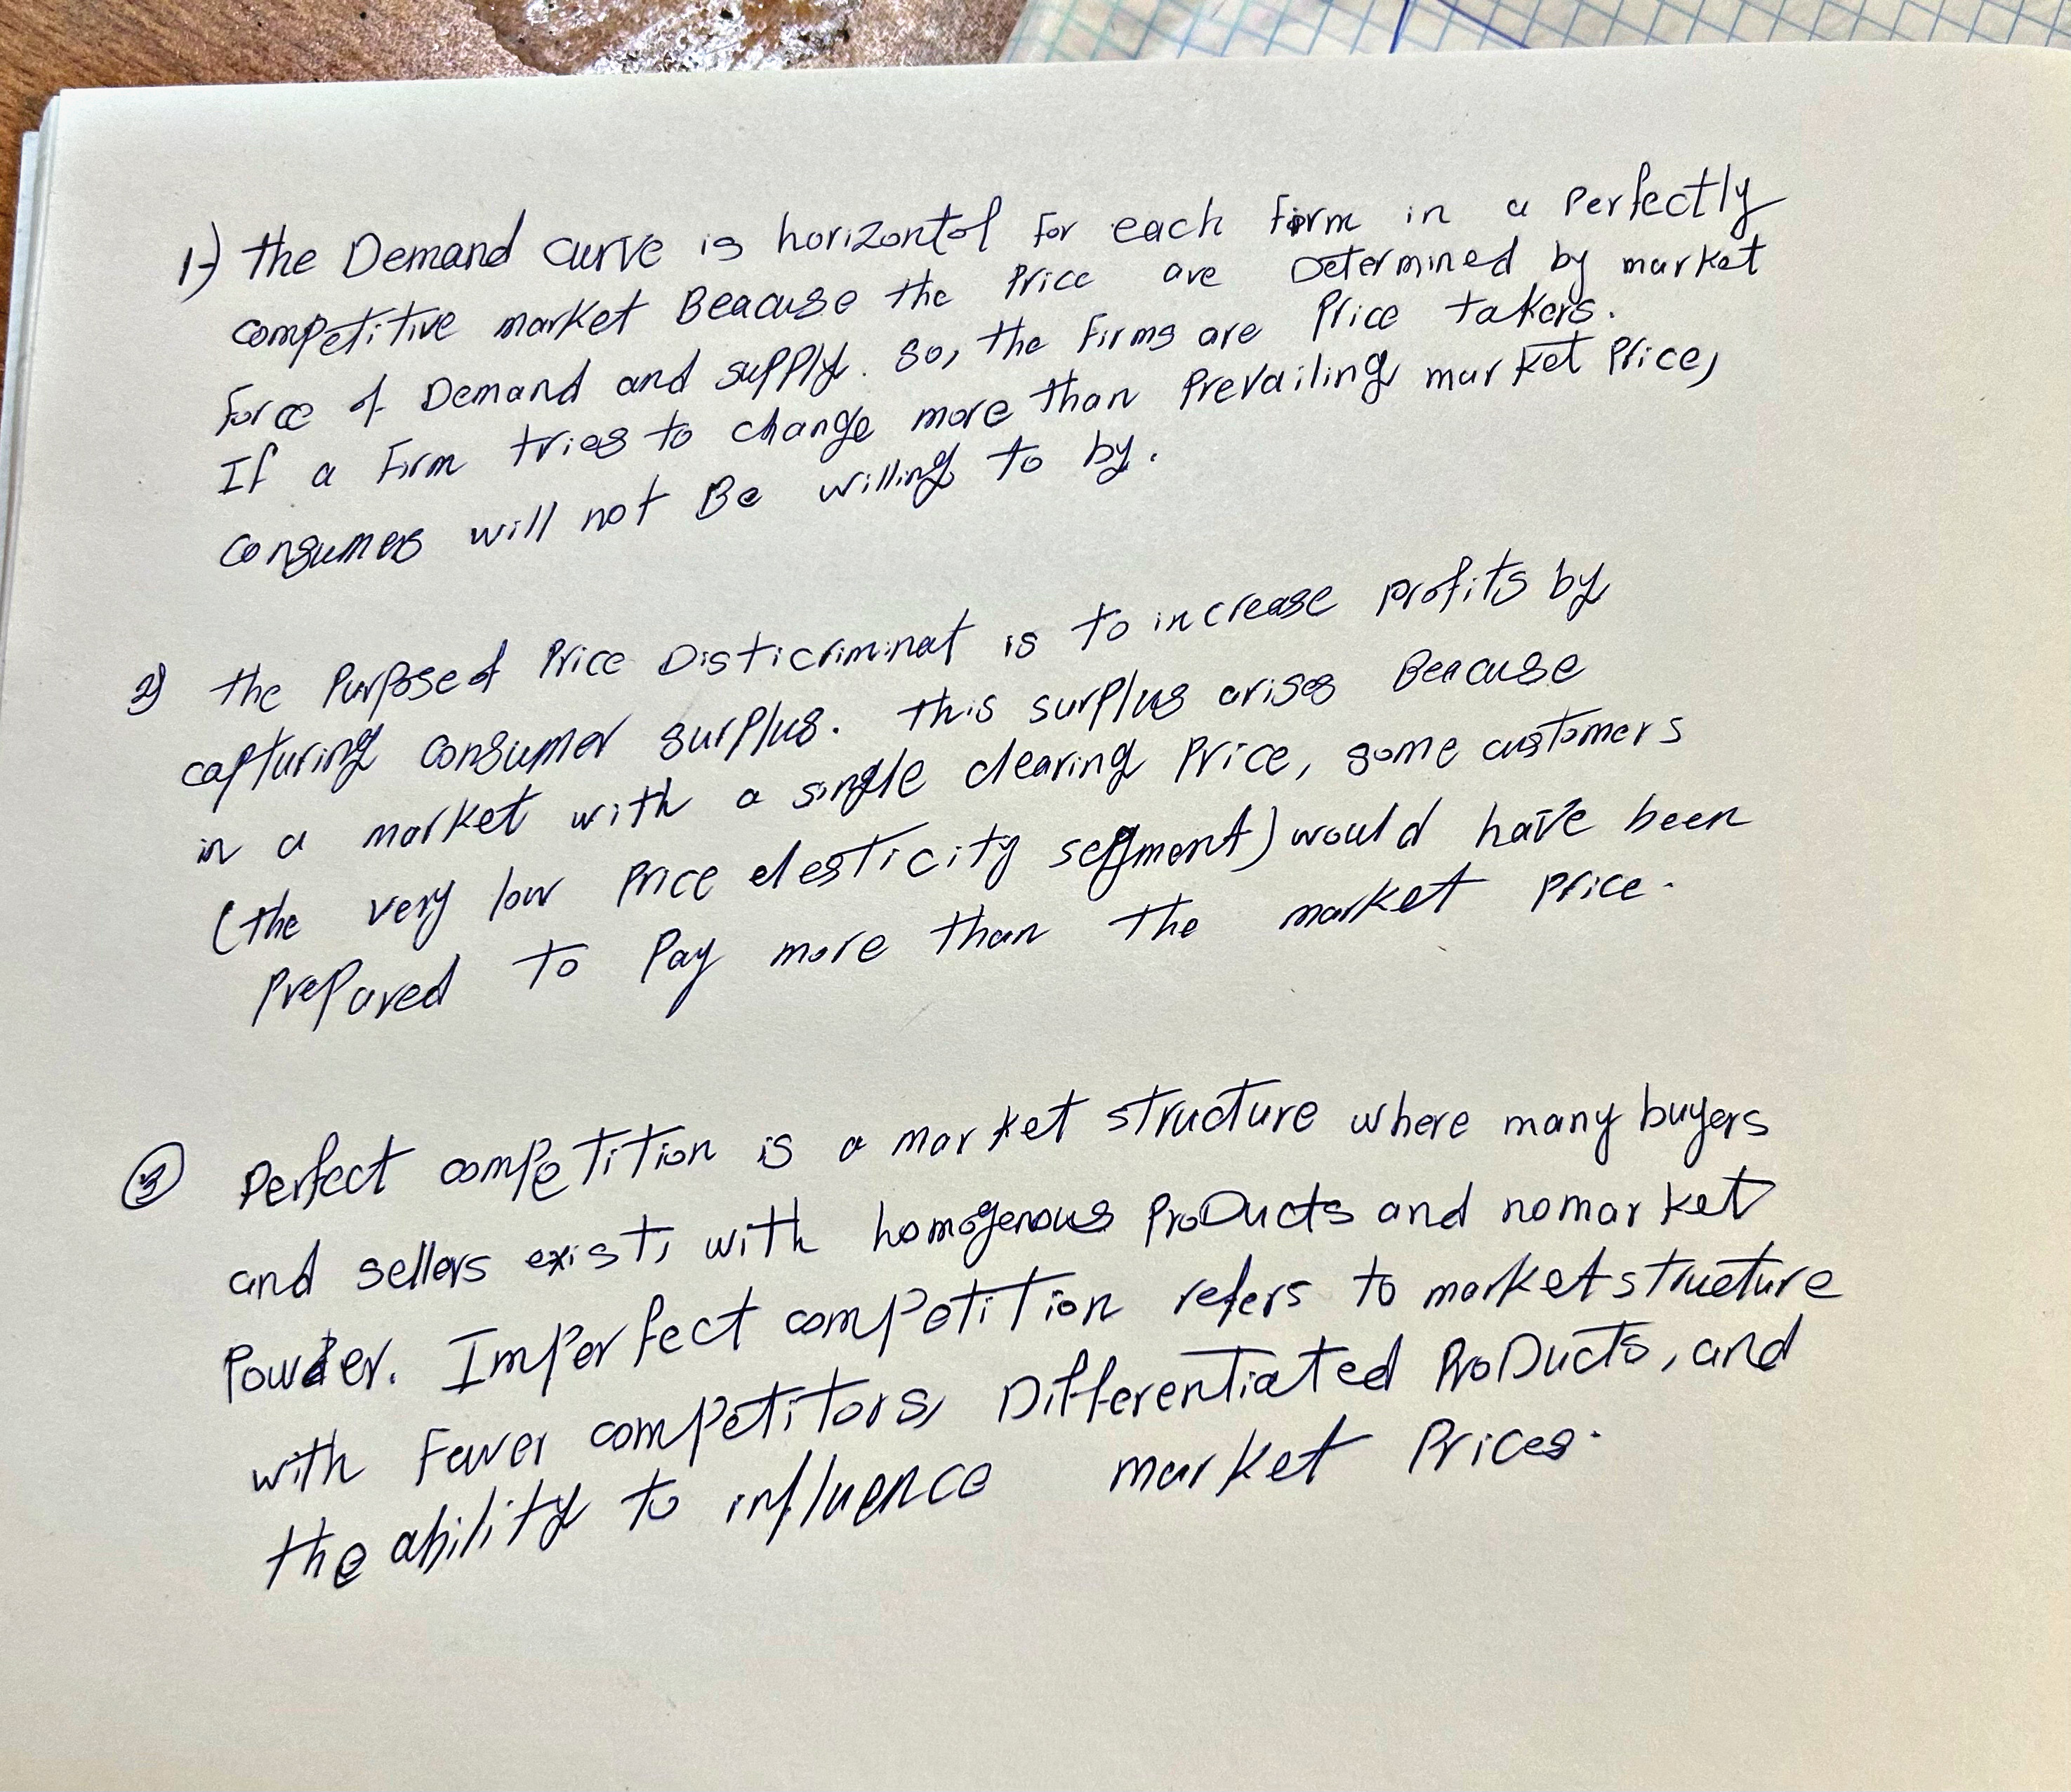 1-) the Demand curve is horizontal for each firm in a perfectly
competitive market Beacuse the Price are Determined by market
force of Demand and supply. so, the firms are Price takers.
If a firm tries to change more than Prevailing market Price,
consumers will not Be willing to by.
2) the Purpose of Price Disticriminat is to increase profits by
capturing consumer surplus. this surplus arises Beacuse
in a market with a single clearing Price, some customers
(the very low Price elesticity segment) would have been
PrePared to Pay more than the market price.
3 Perfect competition is a market structure where many buyers
and sellers exist, with homogenous ProDucts and no market
Power. Imperfect competition refers to market structure
with Fewer competitors, Differentiated ProDucts, and
the ability to influence market Prices.